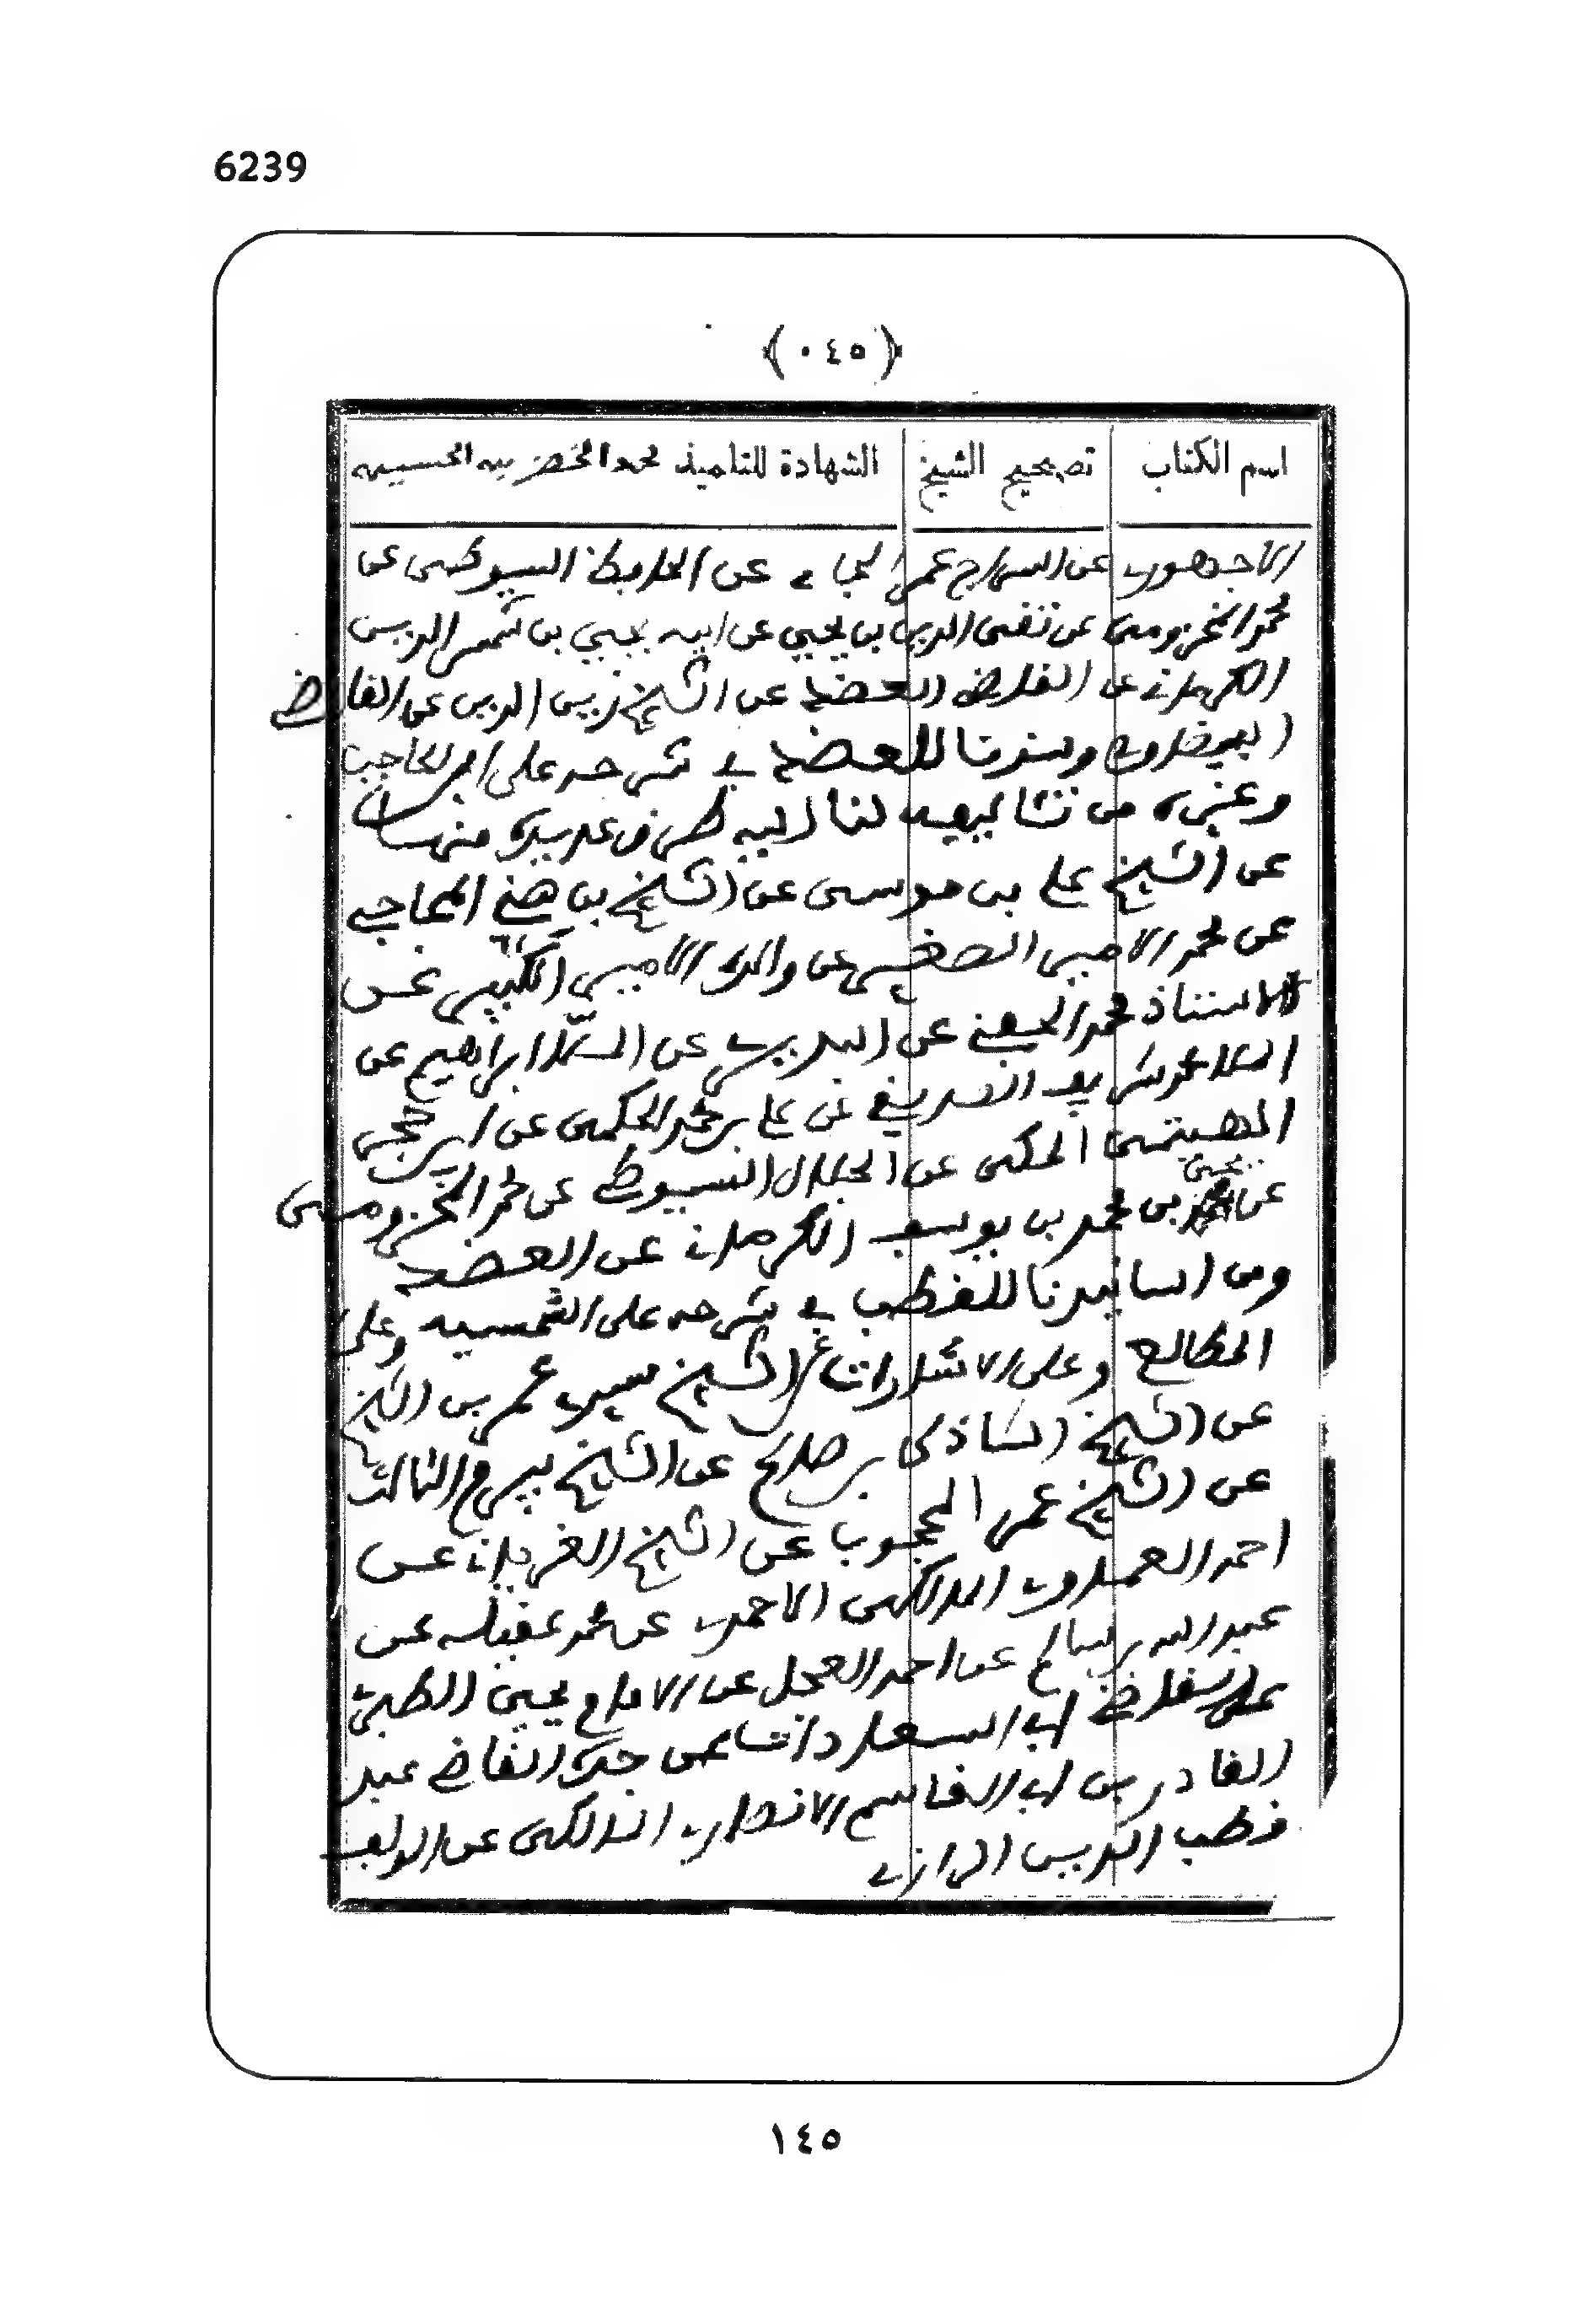 6239
(٠٤٥)
اسم الكتاب تصحيح الشيخ الشهادة للتلميذ محمد الخضر بن الحسين
الاجهوري عن السراج عمر الجاي عن الحافظ السيوطي عن
محمد المخزومي عن تقي الدين بن يحيى عن ابيه يحيي بن شمس الدين
الكرماني عن القاضي العضد عن الشيخ زين الدين عن القاضي
البيضاوي وسندنا للعضد في شرحه على ابن الحاجب
وغيره من تئاليفه لنا اليه طرق عديدة منها
عن الشيخ علي بن موسى عن الشيخ بن هني المجاجي
عن محمد الامير الصغير عن والده الامير الكبير عن
الاستاذ محمد الحفني عن البديري عن الملا ابراهيم عن
الملا محمد شريف عن علي بن محمد الحكمي عن ابن حجر
الهيتمي المكي عن الجلال السيوطي عن محمد المخزومي
عن يحيى بن محمد بن يوسف الكرماني عن العضد
ومن اسانيدنا للقطب في شرحه على الشمسيه وعلى
المطالع وعلى الاشارات عن الشيخ سيدي عمر بن الشيخ
عن الشيخ الشاذلي بن صالح عن الشيخ بيرم الثالث
عن الشيخ عمر المحجوب عن الشيخ الغرياني عن
احمد العماوي المالكي الاحمدي عن محمد عقيله عن
عبد الله بن سالم عن احمد العجل عن الامام يحيى الطبري
على القاضي ابي السعادات عن جده القاضي عبد
القادر بن ابي القاسم الانصاري المالكي عن المولف
قطب الدين الرازي
١٤٥